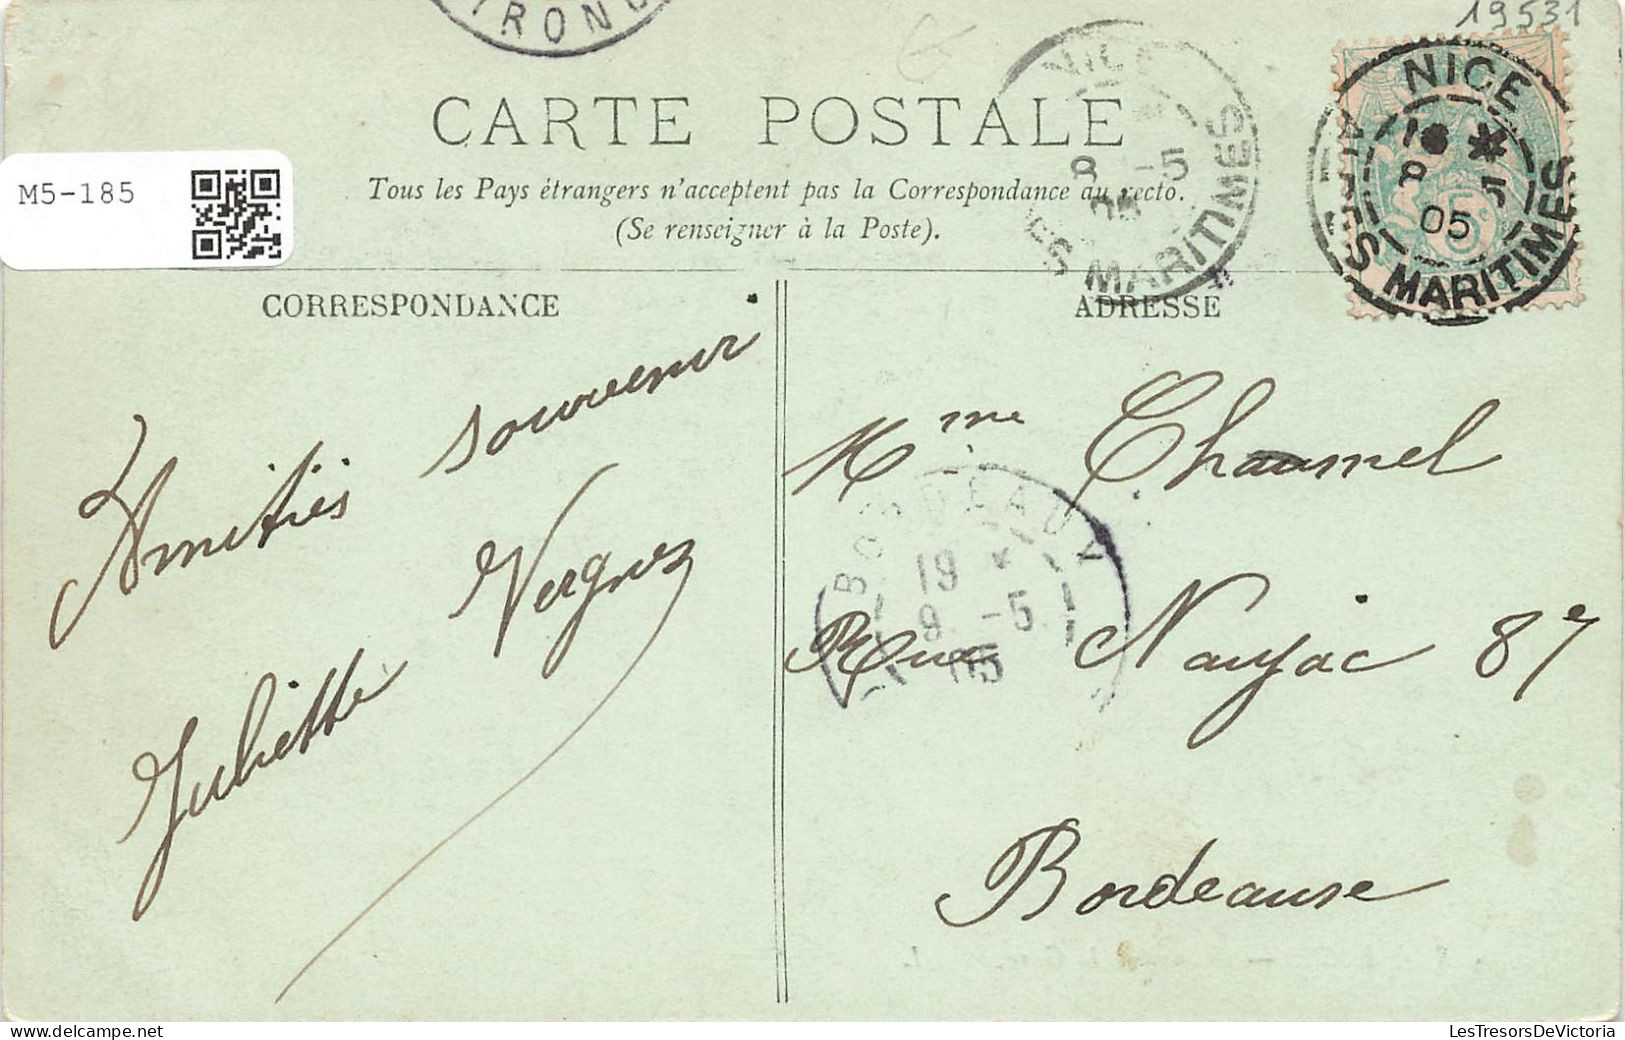 IRON
19531
CARTE POSTALE
M5-185
Tous les Pays étrangers n'acceptent pas la Correspondance au recto.
(Se renseigner à la Poste).
NICE
8 -5
05
ES MARITIMES
NICE
5
05
ALPES MARITIMES
CORRESPONDANCE
ADRESSE
Amitiés souvenir
Juliette Vergnes
Mme Chaumel
Rue Naujac 87
Bordeaux
BORDEAUX
19 *
9 -5
05
LesTresorsDeVictoria.com
LesTresorsDeVictoria